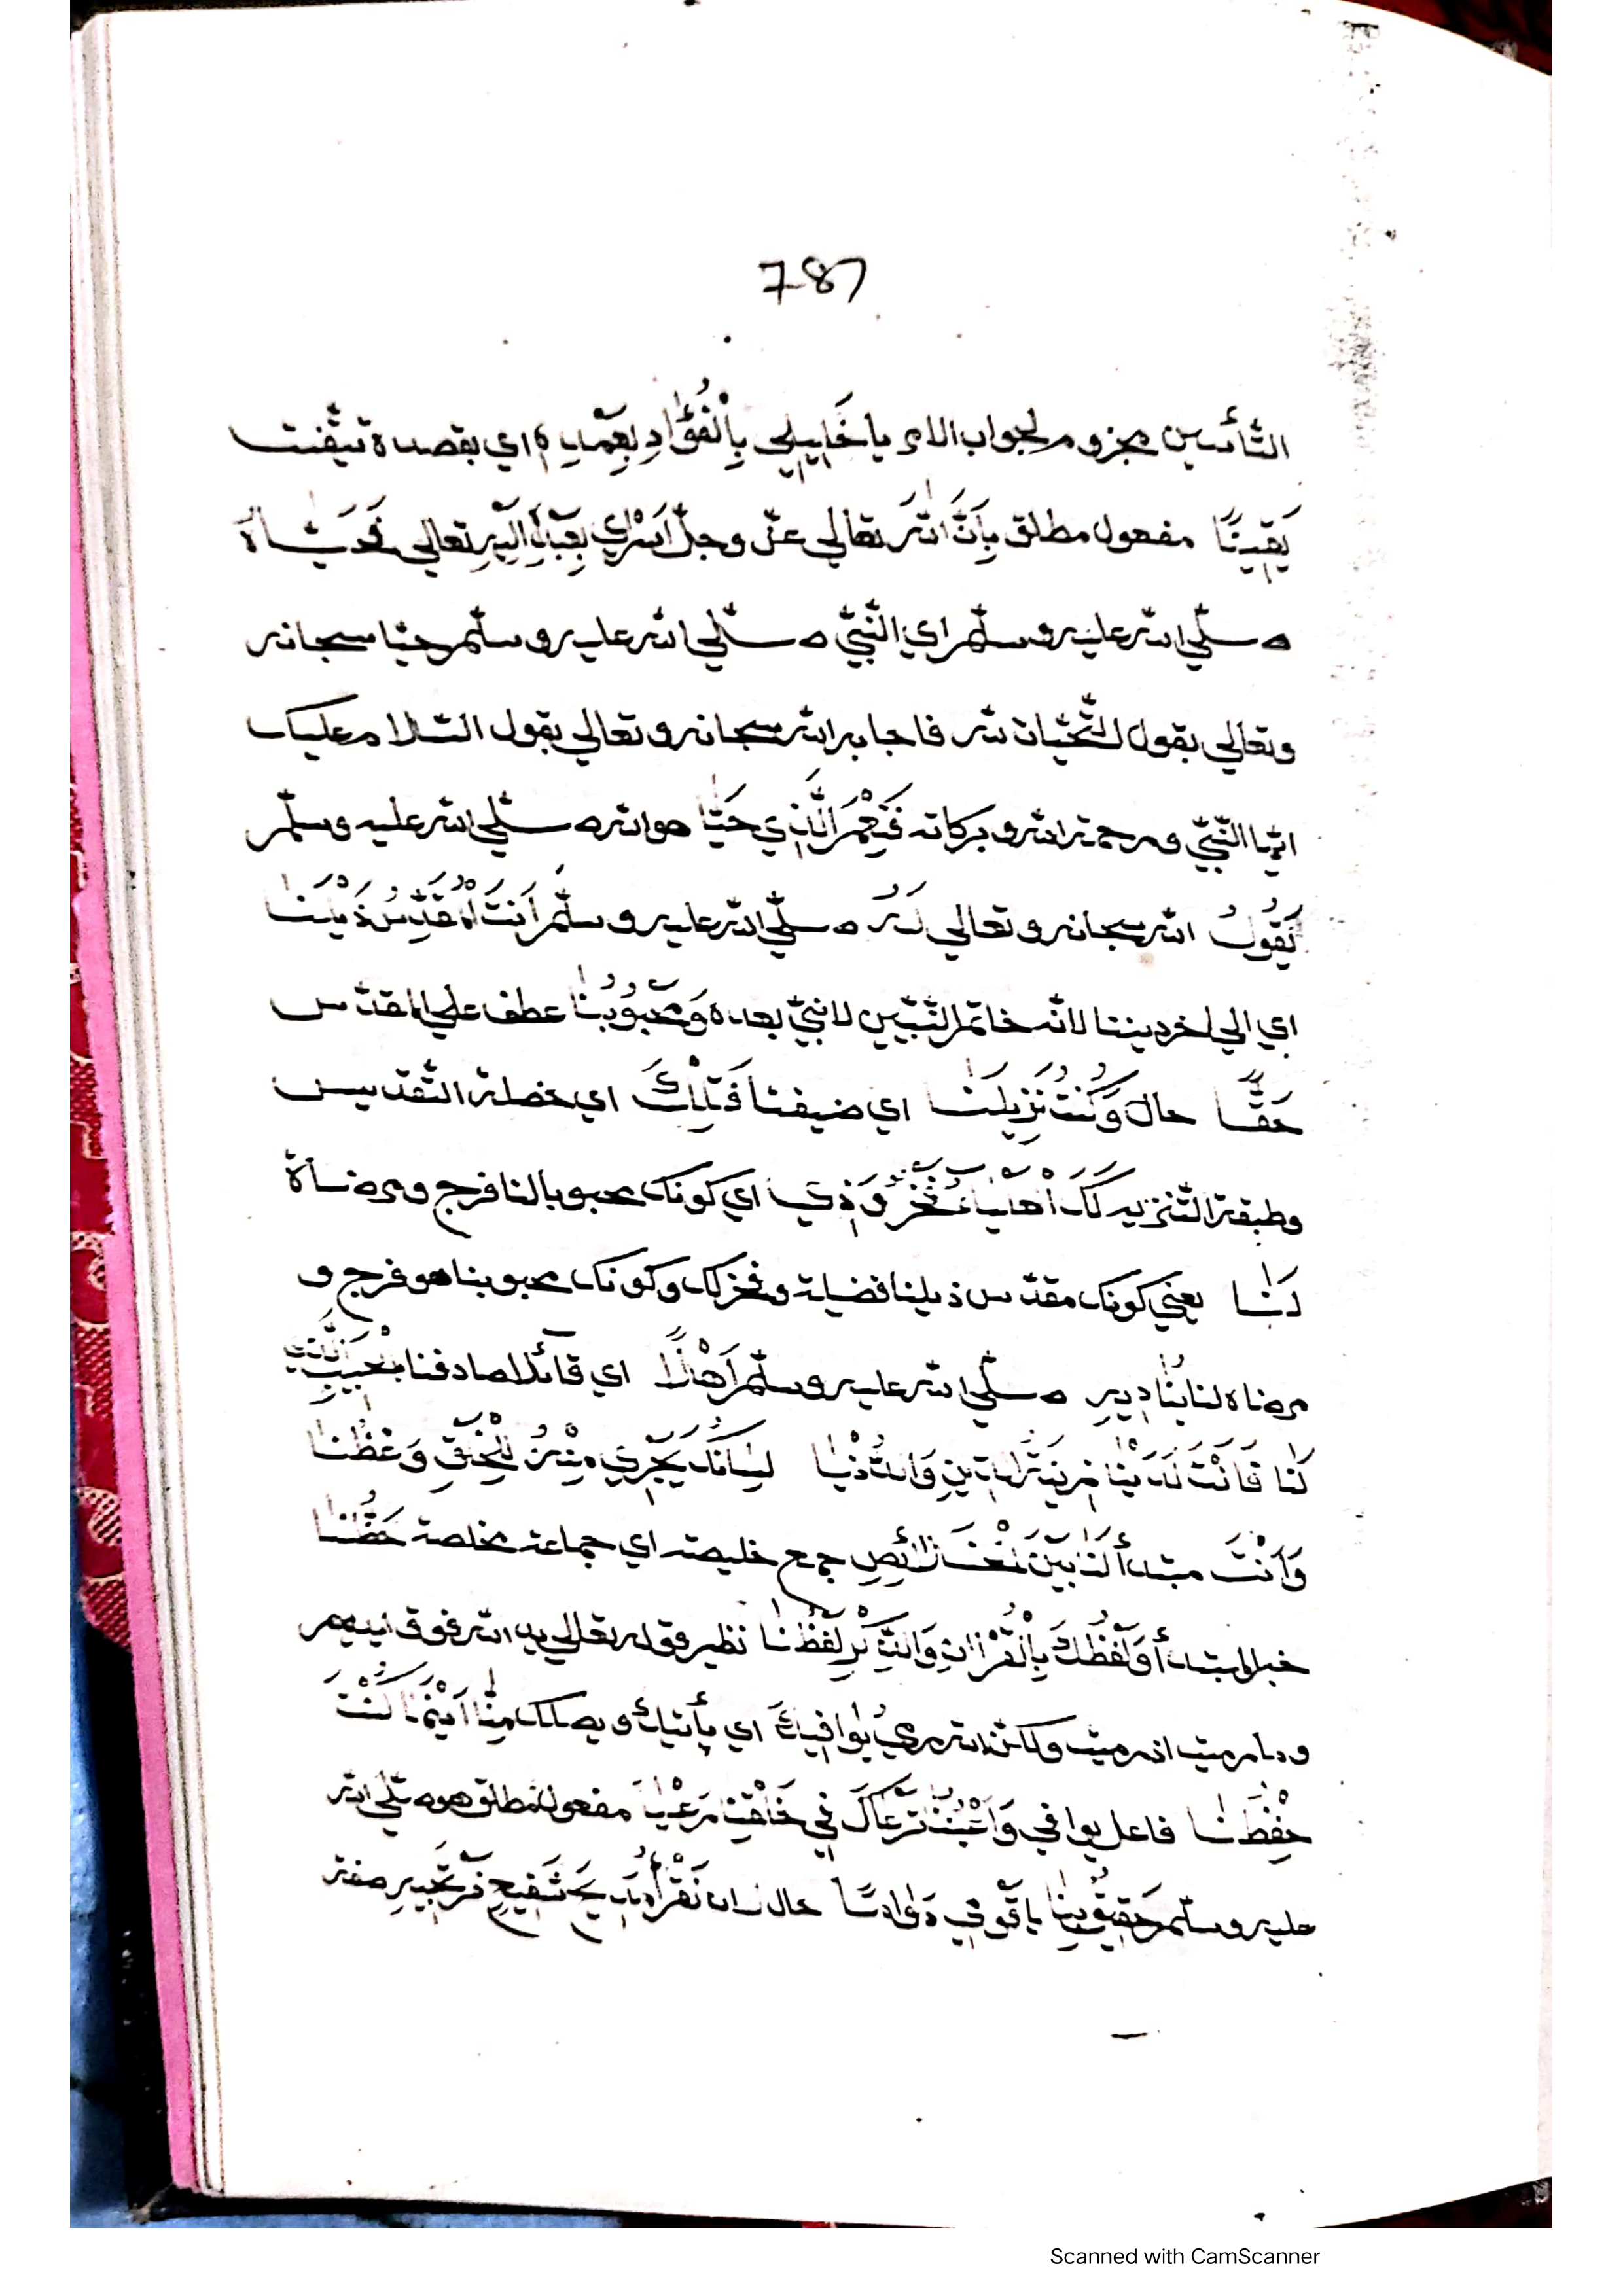 787
التأنيس مجزوم لجواب الامر يا خَلِيلِي بِالْفُؤَادِ بِعَمْدِهِ اي بقصده تيقّنت
يَقِينًا مفعول مطلق بِأَنَّ اللّٰهَ تعالي عزّ وجلّ اَسْرَي بِعَبْدِهِ اليه تعالي
صلّي اللّه عليه وسلّم اي النّبيّ صلّي اللّه عليه وسلّم حيّا سبحانه
وتعالي بقول التّحيّات للّه فاجابه اللّه سبحانه وتعالي بقول السّلام عليك
ايّها النّبيّ ورحمة اللّه وبركاته فَنِعْمَ الَّذِي حَيَّا هو اللّه صلّي اللّه عليه وسلّم
يَقُولُ اللّه سبحانه وتعالي لَهُ صلّي اللّه عليه وسلّم اَنْتَ الْمُقَدِّسُ ذَيْلَنَا
اي الي اخر ديننا لانّه خاتم النّبيّين لا نبيّ بعده وَمَحْبُوبُنَا عطف علي المقدّس
حَقًّا حال وَكُنْتَ نَزِيلَنَا اي ضيفنا فَتِلْكَ اي خصلة التّقديس
وطبقة التّنزيه لَكَ فَخْرٌ وَذِي اي كونك محبوبا لنا فرج ومرضاة
لَنَا يعني كونك مقدّس ذيلنا فضيلة وفخر لك وكونك محبوبنا هو فرج و
مرضاه لنا يُنَادِيهِ صلّي اللّه عليه وسلّم اَهْلًا اي قائلا صادفنا
لَنَا فَاَنْتَ لَدَيْنَا زِينَةُ الدِّينِ وَالدُّنْيَا لِسَانُكَ يَجْرِي مِنْهُ لِلْخَلْقِ وَعْظُنَا
وَاَنْتَ مبتدأ لَنَا بَيْنَ الْخَلَائِصِ جمع خليصة اي جماعة مخلصة حَظُّنَا
خبر المبتدأ وَلَفْظُكَ بِالْقُرْاٰنِ وَالذِّكْرِ لَفْظُنَا نظير قوله تعالي يد اللّه فوق ايديهم
وما رميت اذ رميت ولكنّ اللّه رمي يُوَافِيكَ اي يأتيك ويصلك مِنَّا اَيْنَمَا كُنْتَ
حِفْظُنَا فاعل يوافي وَاَعْيُنُنَا تَرْعَاكَ فِي خَلْقِنَا رَعْيًا مفعول مطلق هو صلّي اللّه
عليه وسلّم حَقِيقٌ يا قومي حال نَقْرَأُ صفة